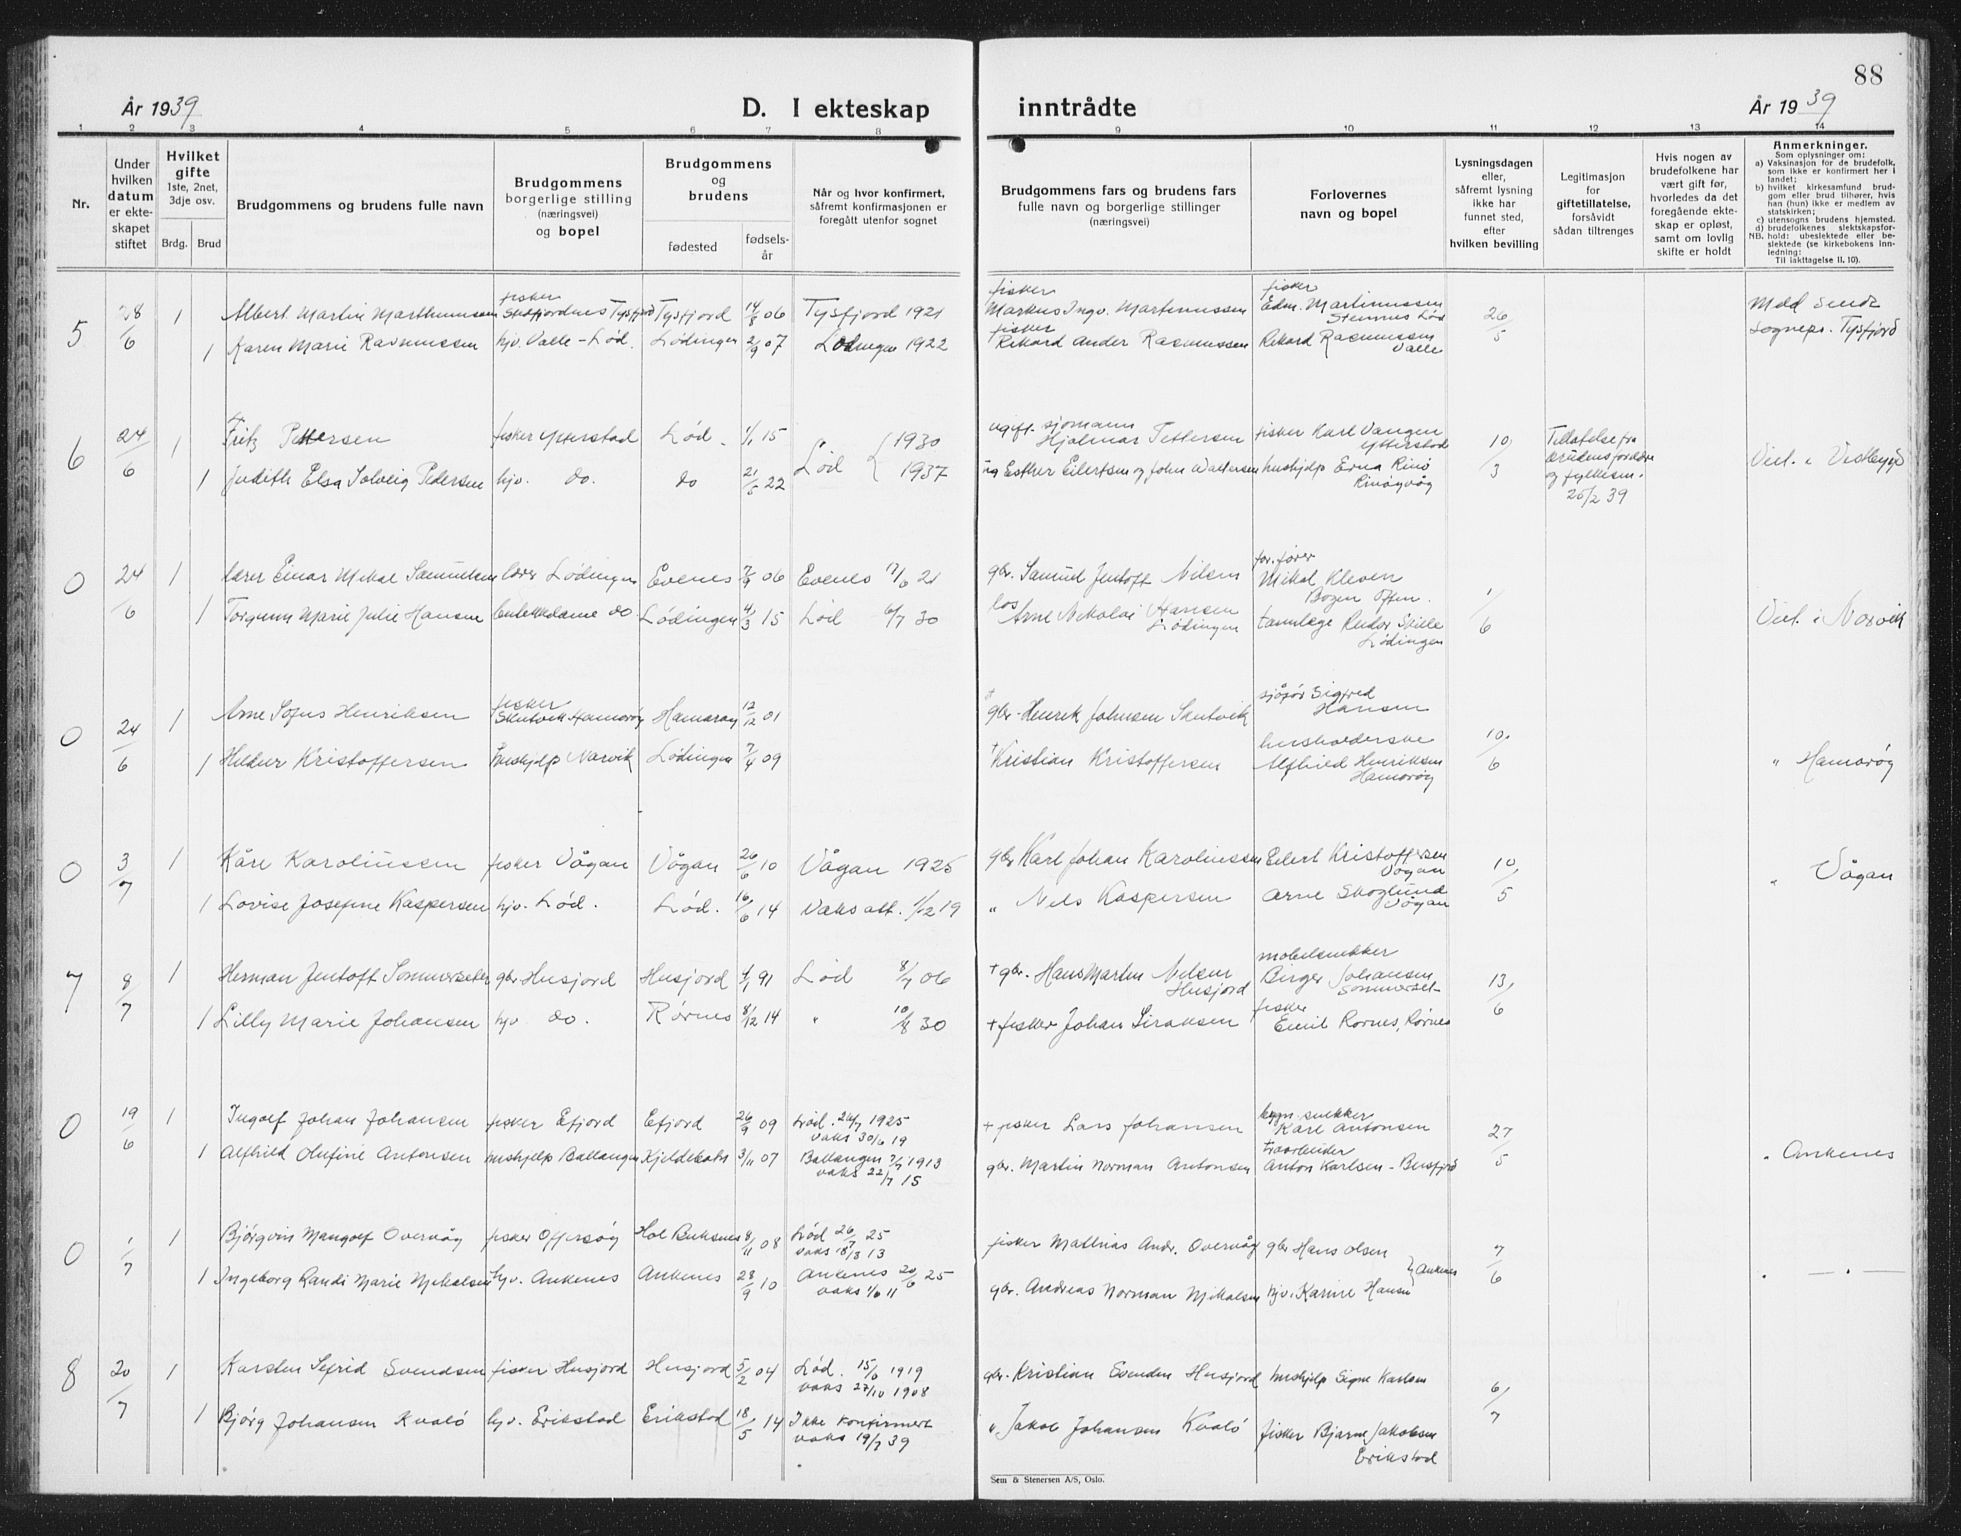 88
År 1939
D. I ekteskap
inntrådte
År 1939
1 2 3 4 5 6 7 8 9 10 11 12 13 14
Nr.
Under
hvilken
datum
er ekte-
skapet
stiftet
Hvilket
gifte
1ste, 2net,
3dje osv.
Brdg. Brud
Brudgommens og brudens fulle navn
Brudgommens
borgerlige stilling
(næringsvei)
og bopel
Brudgommens
og
brudens
fødested
fødsels-
år
Når og hvor konfirmert,
såfremt konfirmasjonen er
foregått utenfor sognet
Brudgommens fars og brudens fars
fulle navn og borgerlige stillinger
(næringsvei)
Forlovernes
navn og bopel
Lysningsdagen
eller,
såfremt lysning
ikke har
funnet sted,
efter
hvilken bevilling
Legitimasjon
for
giftetillatelse,
forsåvidt
sådan tiltrenges
Hvis nogen av
brudefolkene har
vært gift før,
hvorledes da det
foregående ekte-
skap er opløst,
samt om lovlig
skifte er holdt
Anmerkninger.
Som oplysninger om:
a) Vaksinasjon for de brudefolk,
som ikke er konfirmert her i
landet;
b) hvilket kirkesamfund brud-
gom eller brud tilhører, hvis
han (hun) ikke er medlem av
statskirken;
c) utensogns brudens hjemsted.
d) brudefolkenes slektskapsfor-
hold: ubeslektede eller be-
NB. slektede (se kirkebokens Inn-
ledning:
Til iakttagelse II. 10).
5 28/6 1 Albert Martin Marthinussen fisker Tysfjord Tysfjord 14/8 06 Tysfjord 1921 fisker Markus Ingv. Martinussen fisker Edm. Martinussen Stennes Lød 26/5 Medd sendt
1 Karen Marie Rasmussen hjv. Valle - Lød. Lødingen 2/9 07 Lødingen 1922 fisker Rikard Ander Rasmussen Rikard Rasmussen Valle sognepr. Tysfjord
6 24/6 1 Fritz Pettersen fisker Ytterstad Lød. 1/1 15 Lød { 1930 ugift. sjømann Hjalmar Pettersen fisker Karl Vangen Ytterstad 10/3 Tillatelse fra
1 Judith Elsa Solveig Pedersen hjv. do. do 21/5 22 1937 ug Esther Eilertsen og John Waltersen hushjelp Erna Rinø Rinøyvåg brudens foreldre og fylkesm. 25/2 39 Viet i Vestbygd
0 24/6 1 lærer Einar Mikal Samuelsen lærer Lødingen Evenes 7/9 06 Evenes 7/6 21 gbr. Samuel Jentoft Nilsen for.fører Mikal Kleven Bogen Ofoten. 1/6
1 Torgunn Marie Julie Hansen do. Lødingen 4/3 15 Lød 6/7 30 los Arne Nikolai Hansen Lødingen tannlege Reidar Skille Lødingen Viet i Narvik
0 24/6 1 Arne Sofus Henriksen fisker Skutvik Hamarøy Hamarøy 12/12 01 † gbr. Henrik Johnsen Skutvik sjåfør Sigfred Hansen 10/6
1 Hildur Kristoffersen hushjelp Narvik Lødingen 7/4 09 † Kristian Kristoffersen husholderske Alfhild Henriksen Hamarøy " Hamarøy
0 3/7 1 Kåre Karoliussen fisker Vågan Vågan 26/6 10 Vågan 1925 gbr Karl Johan Karoliussen Eilert Kristoffersen Vågan 10/5 " Vågan
1 Lovise Josefine Kaspersen hjv. Lød. Lød. 16/6 14 Vaks att. 1/12 19 " Nels Kaspersen Arne Skoglund Vågan
7 8/7 1 Herman Jentoft Sommerseter gbr Husjord Husjord 4/1 91 Lød 8/7 06 + gbr. Hans Martin Nilsen Husjord møbelsnekker Birger Johansen Sommerset 13/6
1 Lilly Marie Johansen hjv do. Rørnes 8/12 14 " 10/8 30 + fisker Johan Siraksen fisker Emil Rørnes, Rørnes
0 19/6 1 Ingolf Johan Johansen fisker Efjord Efjord 26/9 09 Lød. 26/7 1925 vaks 30/6 19 + fisker Lars Johansen bygn.snekker Karl Antonsen 27/5
1 Alfhild Olufine Antonsen hushjelp Ballangen Kjeldebotn 3/11 07 Ballangen 7/7 1913 vaks 22/7 15 gbr. Martin Norman Antonsen Anton Karlsen - " Ankenes
0 1/7 1 Bjørgvin Mangolf Overvåg fisker Offersøy Hol Buksnes 8/11 08 Lød 26/7 25 vaks 18/8 13 fisker Mathias Andr. Overvåg gbr Hans Olsen 7/6
1 Ingeborg Randi Marie Mikalsen hjv. Ankenes Ankenes 28/9 10 Ankenes 20/6 25 vaks 1/6 11 gbr. Andreas Norman Mikalsen hjv. Karine Hansen } Ankenes " — " —
8 20/7 1 Karsten Sefrid Svendsen fisker Husjord Husjord 5/2 04 Lød. 15/6 1919 vaks 27/10 1908 gbr. Kristian Svendsen Husjord hushjelp Signe Karlsen 6/7
1 Bjørg Johansen Kvalø hjv. Erikstad Erikstad 18/5 14 Ikke konfirmert vaks 19/7 39 " Jakob Johansen Kvalø fisker Bjarne Jakobsen Erikstad
Sem & Stenersen A/S, Oslo.